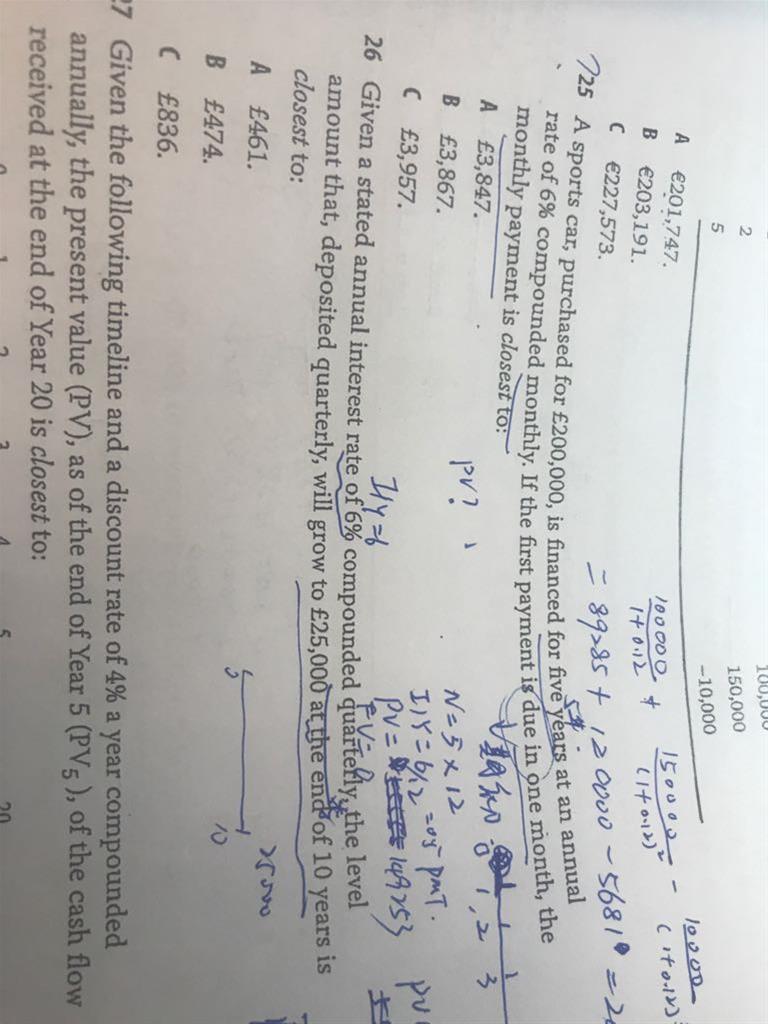 100,000
2 150,000
5 -10,000
A €201,747.
B €203,191.
C €227,573.
100000 / 1+0.12 + 150000 / (1+0.12)² - 10000
= 89285 + 120000 - 5681
25 A sports car, purchased for £200,000, is financed for five years at an annual
rate of 6% compounded monthly. If the first payment is due in one month, the
monthly payment is closest to:
A £3,847.
B £3,867.
C £3,957.
PV?
0 1, 2 3
N = 5 × 12
I/Y = 6/12 = 0.5 PMT.
PV = 149253
FV = 0
I/Y = 6
26 Given a stated annual interest rate of 6% compounded quarterly, the level
amount that, deposited quarterly, will grow to £25,000 at the end of 10 years is
closest to:
A £461.
B £474.
C £836.
25000
10
27 Given the following timeline and a discount rate of 4% a year compounded
annually, the present value (PV), as of the end of Year 5 (PV₅), of the cash flow
received at the end of Year 20 is closest to:
0 1 2 3 4 5 20